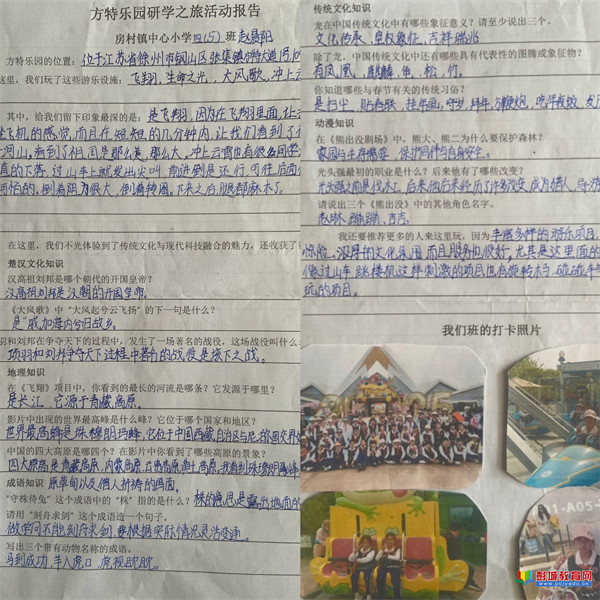 方特乐园研学之旅活动报告
房村镇中心小学四(5)班 赵晨阳
方特乐园的位置: 位于江苏省徐州市铜山区张集镇
这里,我们玩了这些游乐设施: 飞翔,生命之光,大风歌,冲上云
其中,给我们留下印象最深的是: 是飞翔,因为在飞翔里面,让
飞机的感觉,而且在短短的几分钟内,让我们看到了
河山,看到了祖国是那么美,那么大,冲上云霄也有很多同学
直的下落,过山车上就发出尖叫,前进倒是还行,可往后面
可怕的,倒着阻力很大,倒着转圈,下来之后,腿都麻木了
在这里,我们不光体验到了传统文化与现代科技融合的魅力,还收获了
楚汉文化知识
汉高祖刘邦是哪个朝代的开国皇帝?
汉高祖刘邦是汉朝的开国皇帝。
《大风歌》中“大风起兮云飞扬”的下一句是什么?
是“威加海内兮归故乡。
羽和刘邦在争夺天下的过程中,发生了一场著名的战役,这场战役叫什么
项羽和刘邦争夺天下过程中著名的战役是垓下之战。
地理知识
在《飞翔》项目中,你看到的最长的河流是哪条?它发源于哪里?
是长江,它源于青藏高原。
影片中出现的世界最高峰是什么峰?它位于哪个国家和地区?
世界最高峰是珠穆朗玛峰,它位于中国西藏自治区与尼泊尔国交界处
中国的四大高原是哪四个?在影片中你看到了哪些高原的景象?
四大原高是青藏高原,内蒙高原,云贵高原,黄土高原,我看到珠穆朗玛峰
成语知识 原草甸以及僧人祈祷的画面,
“守株待兔”这个成语中的“株”指的是什么? 株的意思是露出地面的
请用“刻舟求剑”这个成语造一个句子。
做学问不能刻舟求剑,要根据实际情况灵活变通。
写出三个带有动物名称的成语。
马到成功,羊入虎口,虎视眈眈。
传统文化知识
龙在中国传统文化中有哪些象征意义?请至少说出三个。
文化传承,皇权象征,吉祥瑞兆
除了龙,中国传统文化中还有哪些具有代表性的图腾或象征物?
有凤凰,麒麟,龟,松,竹。
你知道哪些与春节有关的传统习俗?
是扫尘,贴春联,挂年画,守岁,拜年,放鞭炮,吃年夜饭,发
动漫知识
在《熊出没剧场》中,熊大、熊二为什么要保护森林?
家园与生存需要,保护同伴与自身安全。
光头强最初的职业是什么?后来他有了哪些改变?
光头强之前是伐木工,后来他后来经历了许多改变,成为猎人,导游
请说出三个《熊出没》中的其他角色名字。
赵琳,蹦蹦,吉吉。
我还要推荐更多的人来这里玩,因为 丰富多样的游乐项目,
惊险。浓厚的文化氛围而且服务也很好,尤其是这里面的
像过山车,跳楼机这样刺激的项目也有旋转木马,碰碰车
玩的项目。
我们班的打卡照片
11-A05-
彭城教育网
pcjyedu.cn